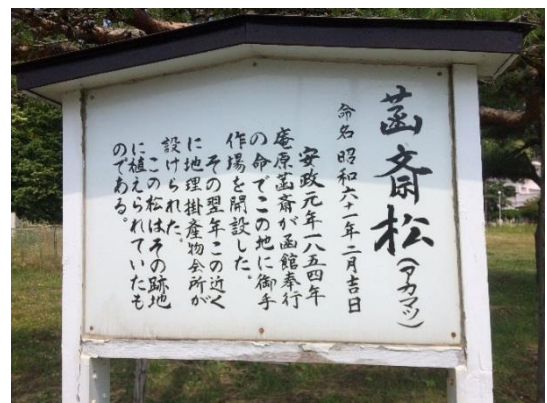 菡斎松(アカマツ)
命名 昭和六一年二月吉日
安政元年一八五四年
庵原菡斎が函館奉行
の命でこの地に御手
作場を開設した。
その翌年この近く
に地理掛産物会所が
設けられた。
この松はその跡地
に植えられていたも
のである。